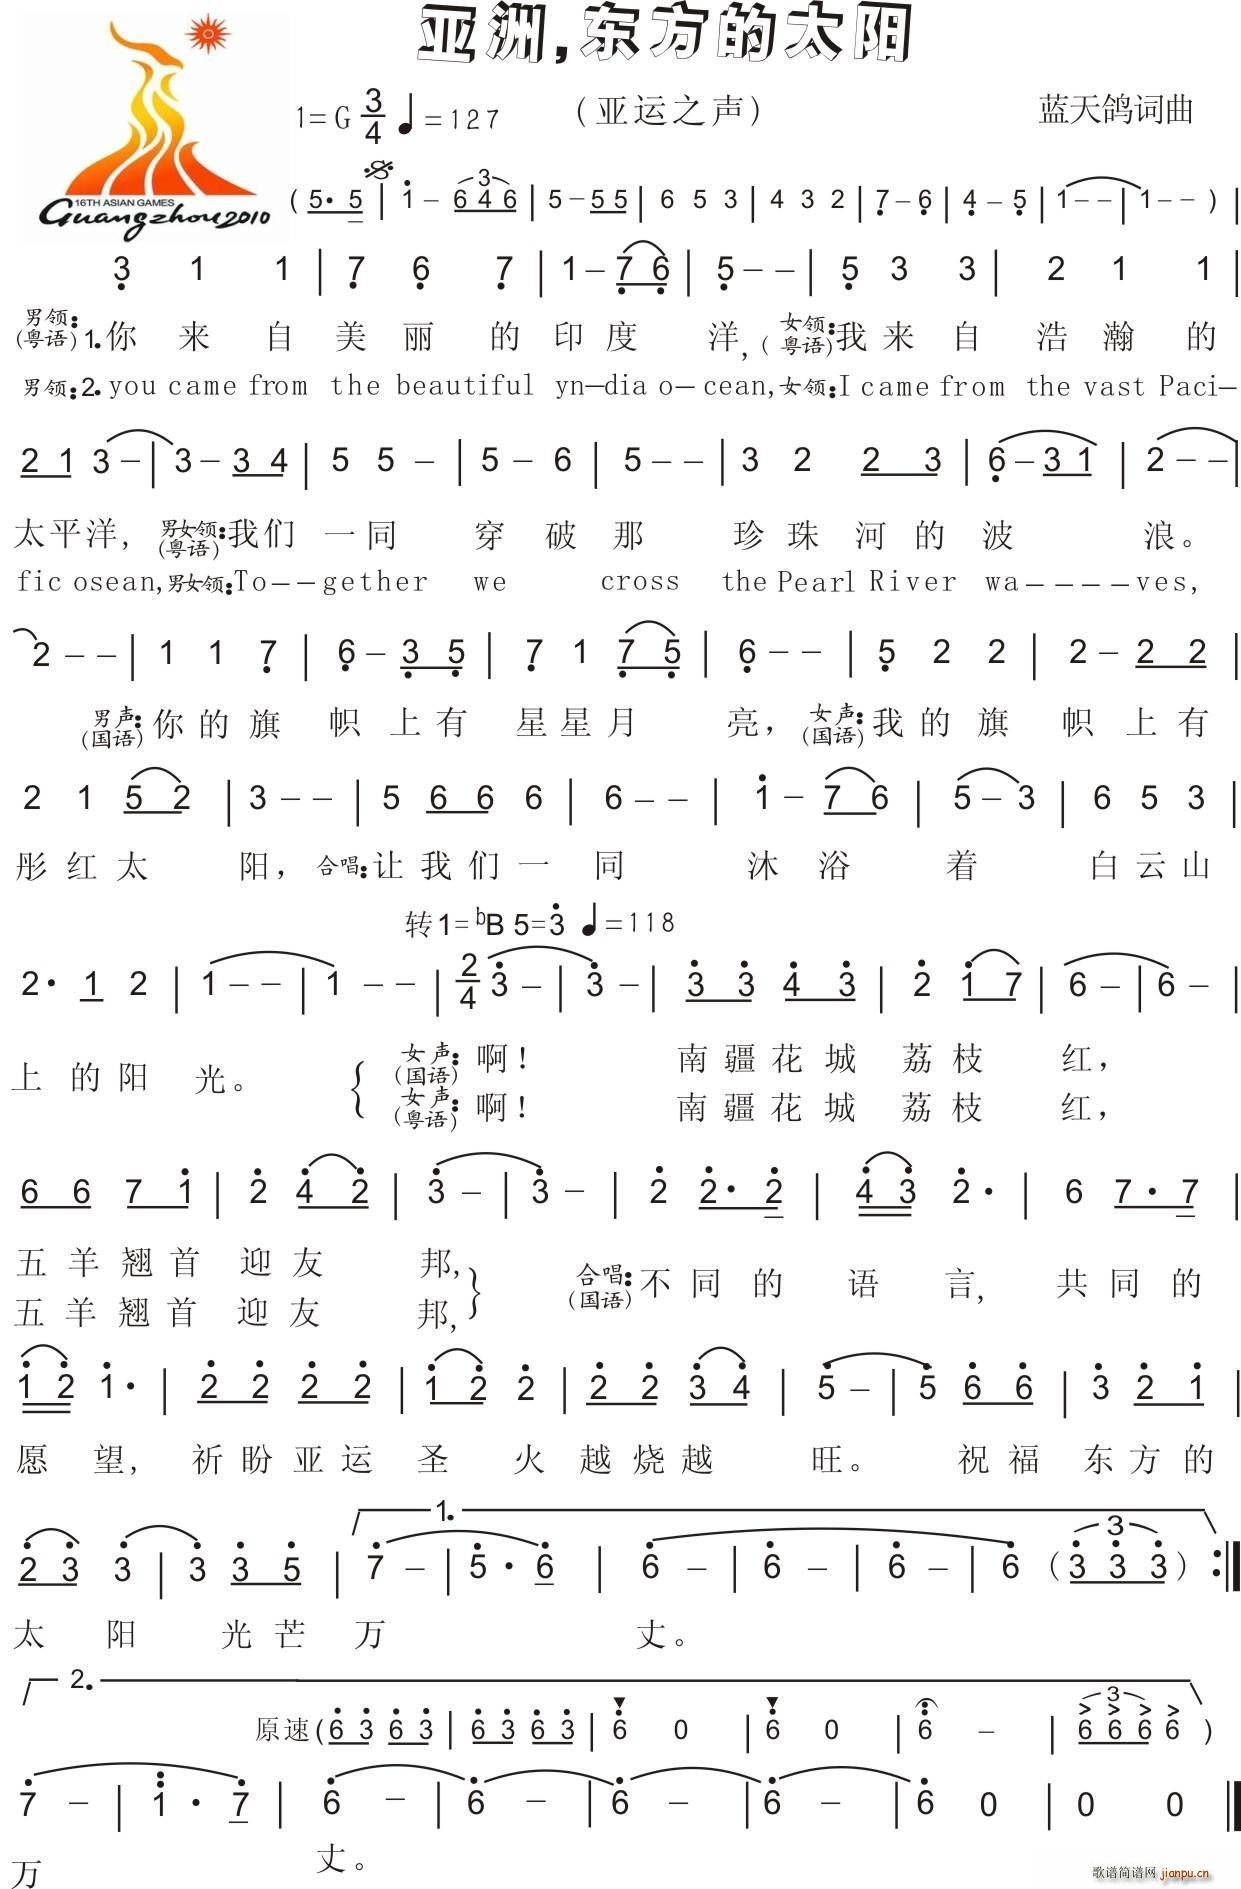 亚洲,东方的太阳
1=G 3/4 ♩=127 （亚运之声） 蓝天鸽词曲
16TH ASIAN GAMES
Guangzhou2010
( 5· 5 | 1 – 6 4 6 | 5 – 5 5 | 6 5 3 | 4 3 2 | 7 – 6 | 4 – 5 | 1 – – | 1 – – ) |
3 1 1 | 7 6 7 | 1 – 7 6 | 5 – – | 5 3 3 | 2 1 1 |
男领:(粤语) 1.你来自美丽的印度洋,女领:(粤语)我来自浩瀚的
男领:2. you came from the beautiful yn–dia o–cean,女领:I came from the vast Paci–
2 1 3 – | 3 – 3 4 | 5 5 – | 5 – 6 | 5 – – | 3 2 2 3 | 6 – 3 1 | 2 – – |
太平洋,男女领:(粤语)我们一同穿破那珍珠河的波浪。
fic osean,男女领:To––gether we cross the Pearl River wa––––ves,
2 – – | 1 1 7 | 6 – 3 5 | 7 1 7 5 | 6 – – | 5 2 2 | 2 – 2 2 |
男声:(国语)你的旗帜上有星星月亮,女声:(国语)我的旗帜上有
2 1 5 2 | 3 – – | 5 6 6 6 | 6 – – | 1 – 7 6 | 5 – 3 | 6 5 3 |
彤红太阳,合唱:让我们一同沐浴着白云山
转1=ᵇB 5=3 ♩=118
2· 1 2 | 1 – – | 1 – – | 2/4 3 – | 3 – | 3 3 4 3 | 2 1 7 | 6 – | 6 – |
上的阳光。 女声:(国语)啊! 南疆花城荔枝红,
女声:(粤语)啊! 南疆花城荔枝红,
6 6 7 1 | 2 4 2 | 3 – | 3 – | 2 2· 2 | 4 3 2· | 6 7· 7 |
五羊翘首迎友邦, 合唱:(国语)不同的语言,共同的
五羊翘首迎友邦,
1 2 1· | 2 2 2 2 | 1 2 2 | 2 2 3 4 | 5 – | 5 6 6 | 3 2 1 |
愿望,祈盼亚运圣火越烧越旺。祝福东方的
1.
2 3 3 | 3 3 5 | 7 – | 5· 6 | 6 – | 6 – | 6 – | 6 ( 3 3 3 ) :|
太阳光芒万丈。
2.
原速 ( 6 3 6 3 | 6 3 6 3 | 6 0 | 6 0 | 6 – | 6 6 6 6 )
7 – | 1· 7 | 6 – | 6 – | 6 – | 6 – | 6 0 0 | 0 0 ‖
万丈。
歌谱简谱网 jianpu.cn